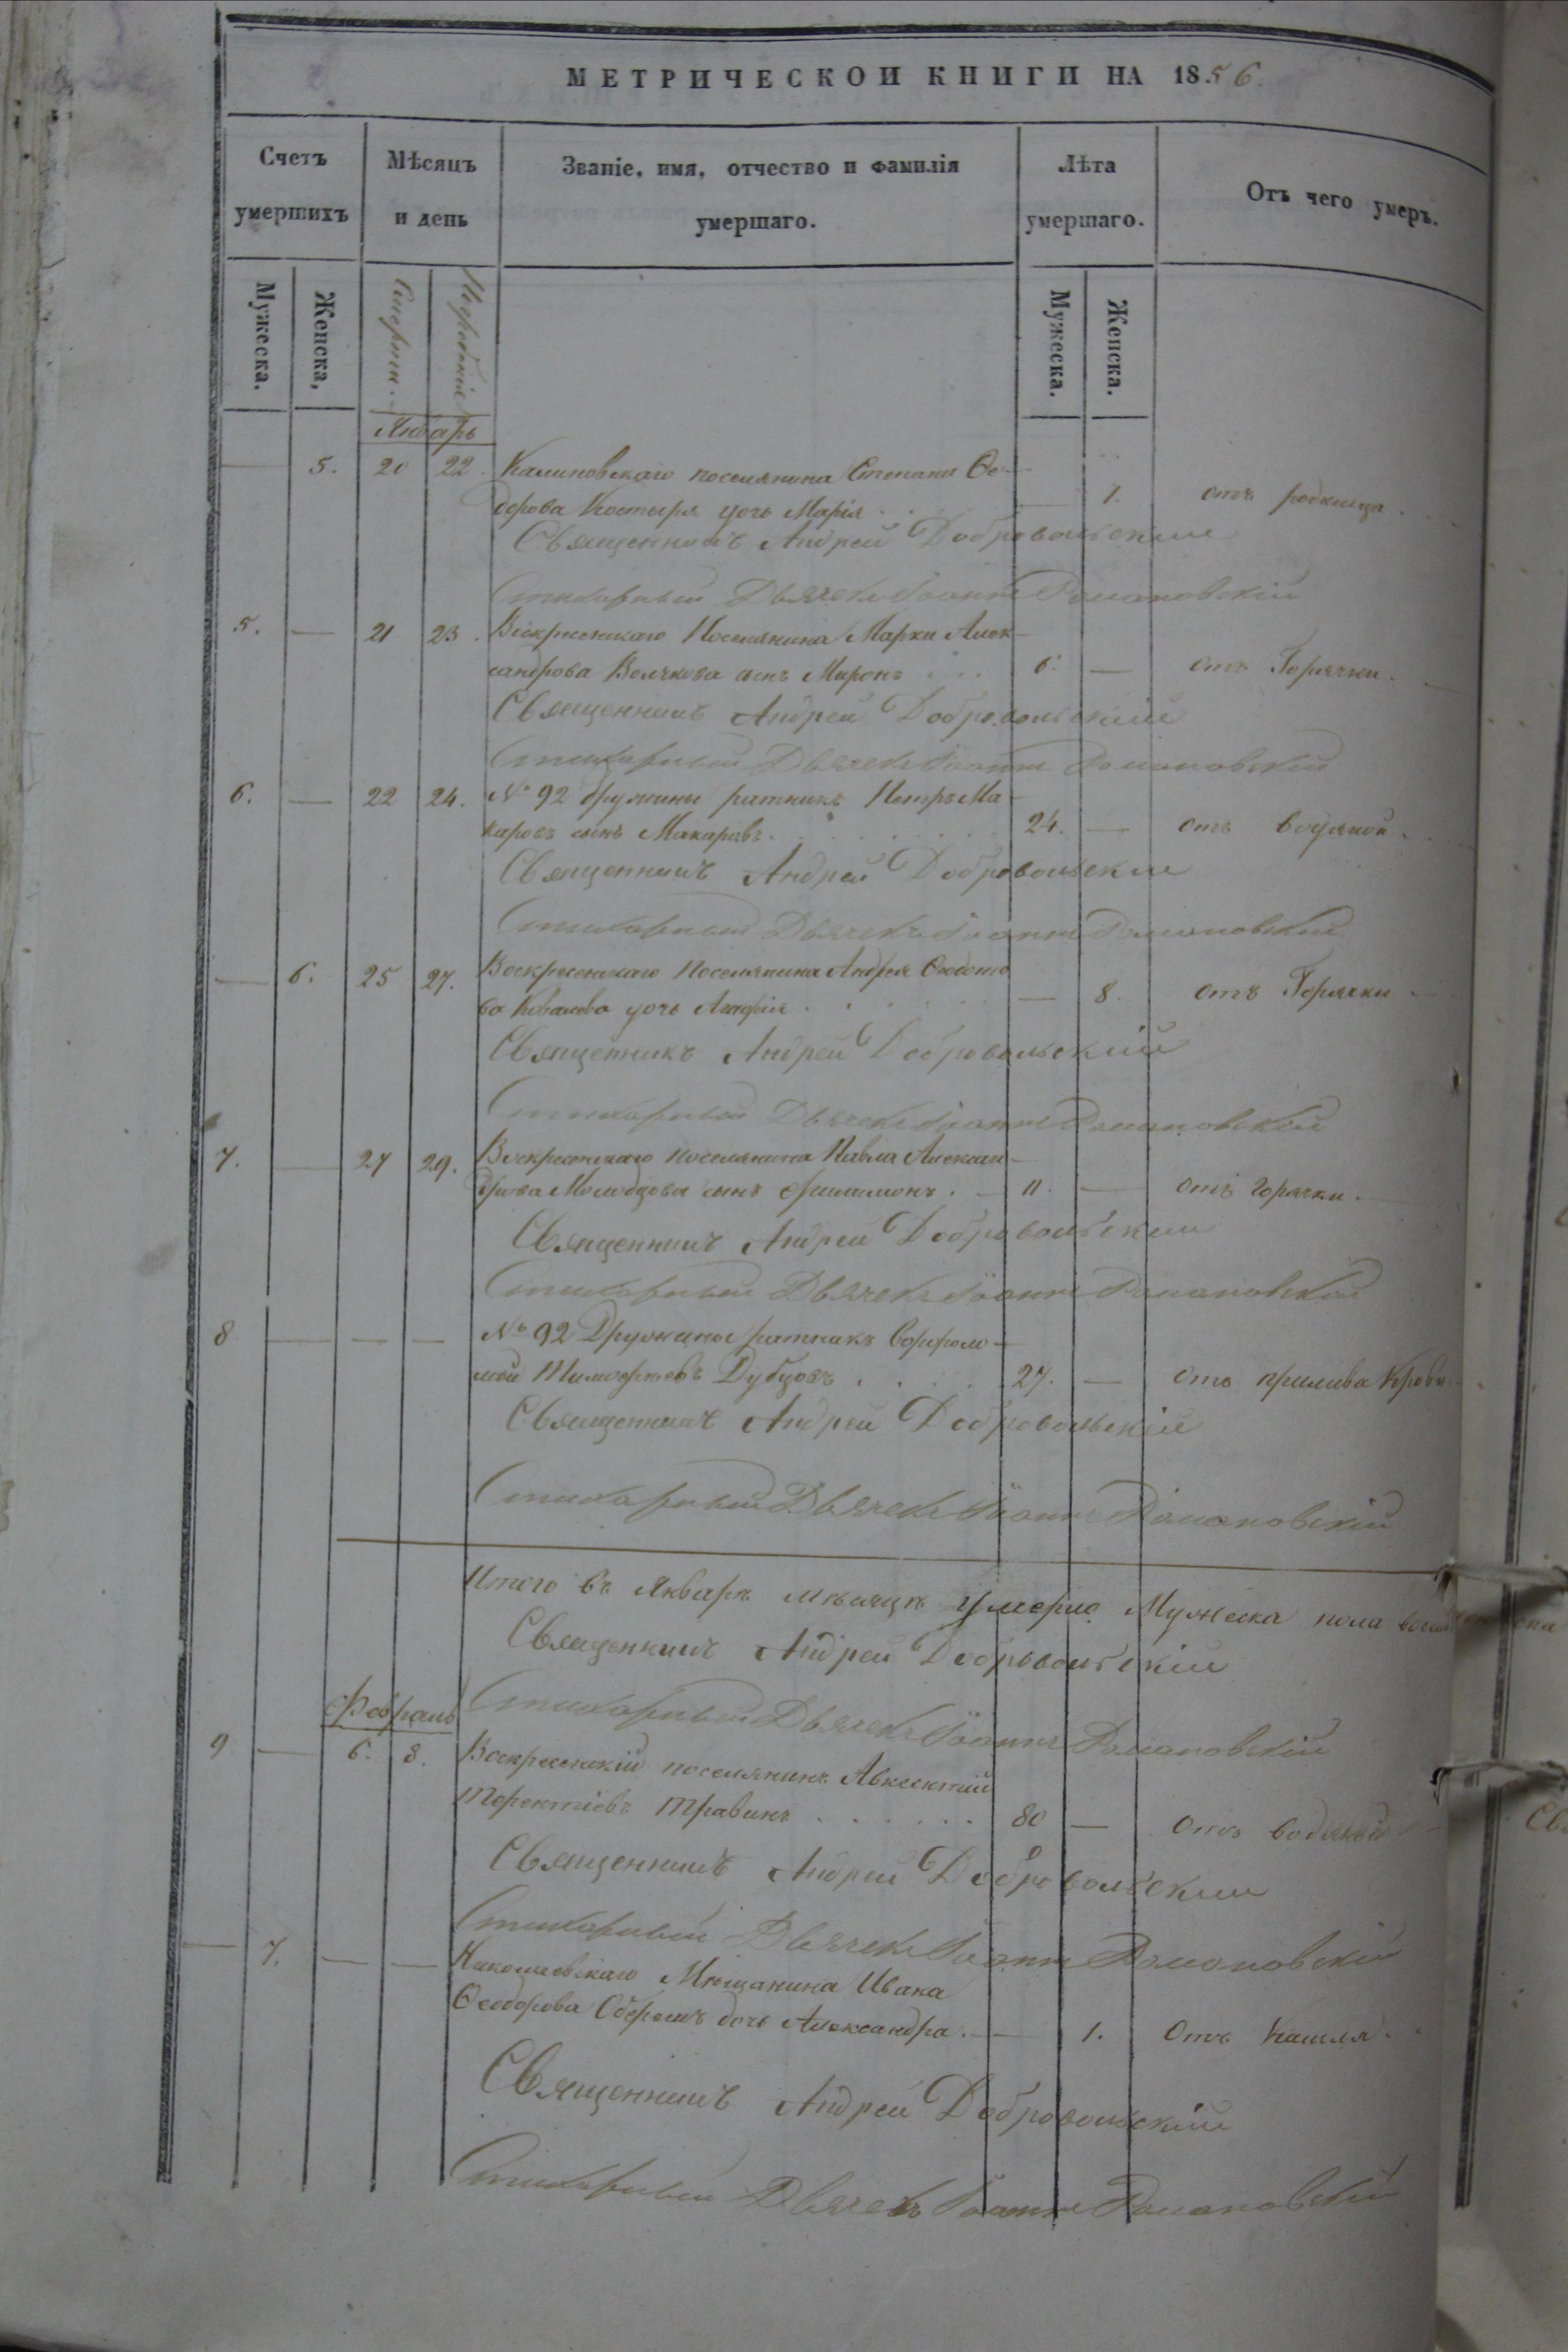 МЕТРИЧЕСКОЙ КНИГИ НА 1856.
Счетъ умершихъ
Мѣсяцъ и день
Званіе, имя, отчество и фамилія умершаго.
Лѣта умершаго.
Отъ чего умеръ.
Мужеска.
Женска,
Смерти.
Погребенія
Мужеска.
Женска.
Январь
5. 20 22. Калиновскаго поселянина Степана Ѳе-
дорова Костыря дочь Марія. 1. отъ родимца.
Священникъ Андрей Добровольскій
Стихарный Дьячекъ Іоаннъ Романовскій
5. — 21 23. Воскресенскаго Поселянина Марки Алек-
сандрова Волчкова сынъ Миронъ 6. — отъ Горячки.
Священникъ Андрей Добровольскій
Стихарный Дьячекъ Іоаннъ Романовскій
6. — 22 24. № 92 дружины ратникъ Петръ Ма-
каровъ сынъ Макаровъ. 24. — отъ водяной.
Священникъ Андрей Добровольскій
Стихарный Дьячекъ Іоаннъ Романовскій
— 6. 25 27. Воскресенскаго Поселянина Андрея Ѳедото
ва Ковалева дочь — 8. отъ Горячки
Священникъ Андрей Добровольскій
Стихарный Дьячекъ Іоаннъ Романовскій
7. — 27 29. Воскресенскаго поселянина Павла Алексан-
дрова Молодцова сынъ Филимонъ. — 11. — отъ горячки.
Священникъ Андрей Добровольскій
Стихарный Дьячекъ Іоаннъ Романовскій
8 — — — № 92 Дружины ратникъ Ворфоло-
мей Тимофѣевъ Дубцовъ 27. — отъ прилива Крови.
Священникъ Андрей Добровольскій
Стихарный Дьячекъ Іоаннъ Романовскій
Итого въ Январѣ мѣсяцѣ умерло Мужеска пола
Священникъ Андрей Добровольскій
Стихарный Дьячекъ Іоаннъ Романовскій
Февраль
9 — 6. 8. Воскресенскій поселянинъ Авксентій
Терентіевъ Травинъ 80 — Отъ водяной
Священникъ Андрей Добровольскій
Стихарный Дьячекъ Іоаннъ Романовскій
— 7. — — Николаевскаго Мѣщанина Ивана
Ѳеодорова дочь Александра. — 1. Отъ кашля.
Священникъ Андрей Добровольскій
Стихарный Дьячекъ Іоаннъ Романовскій